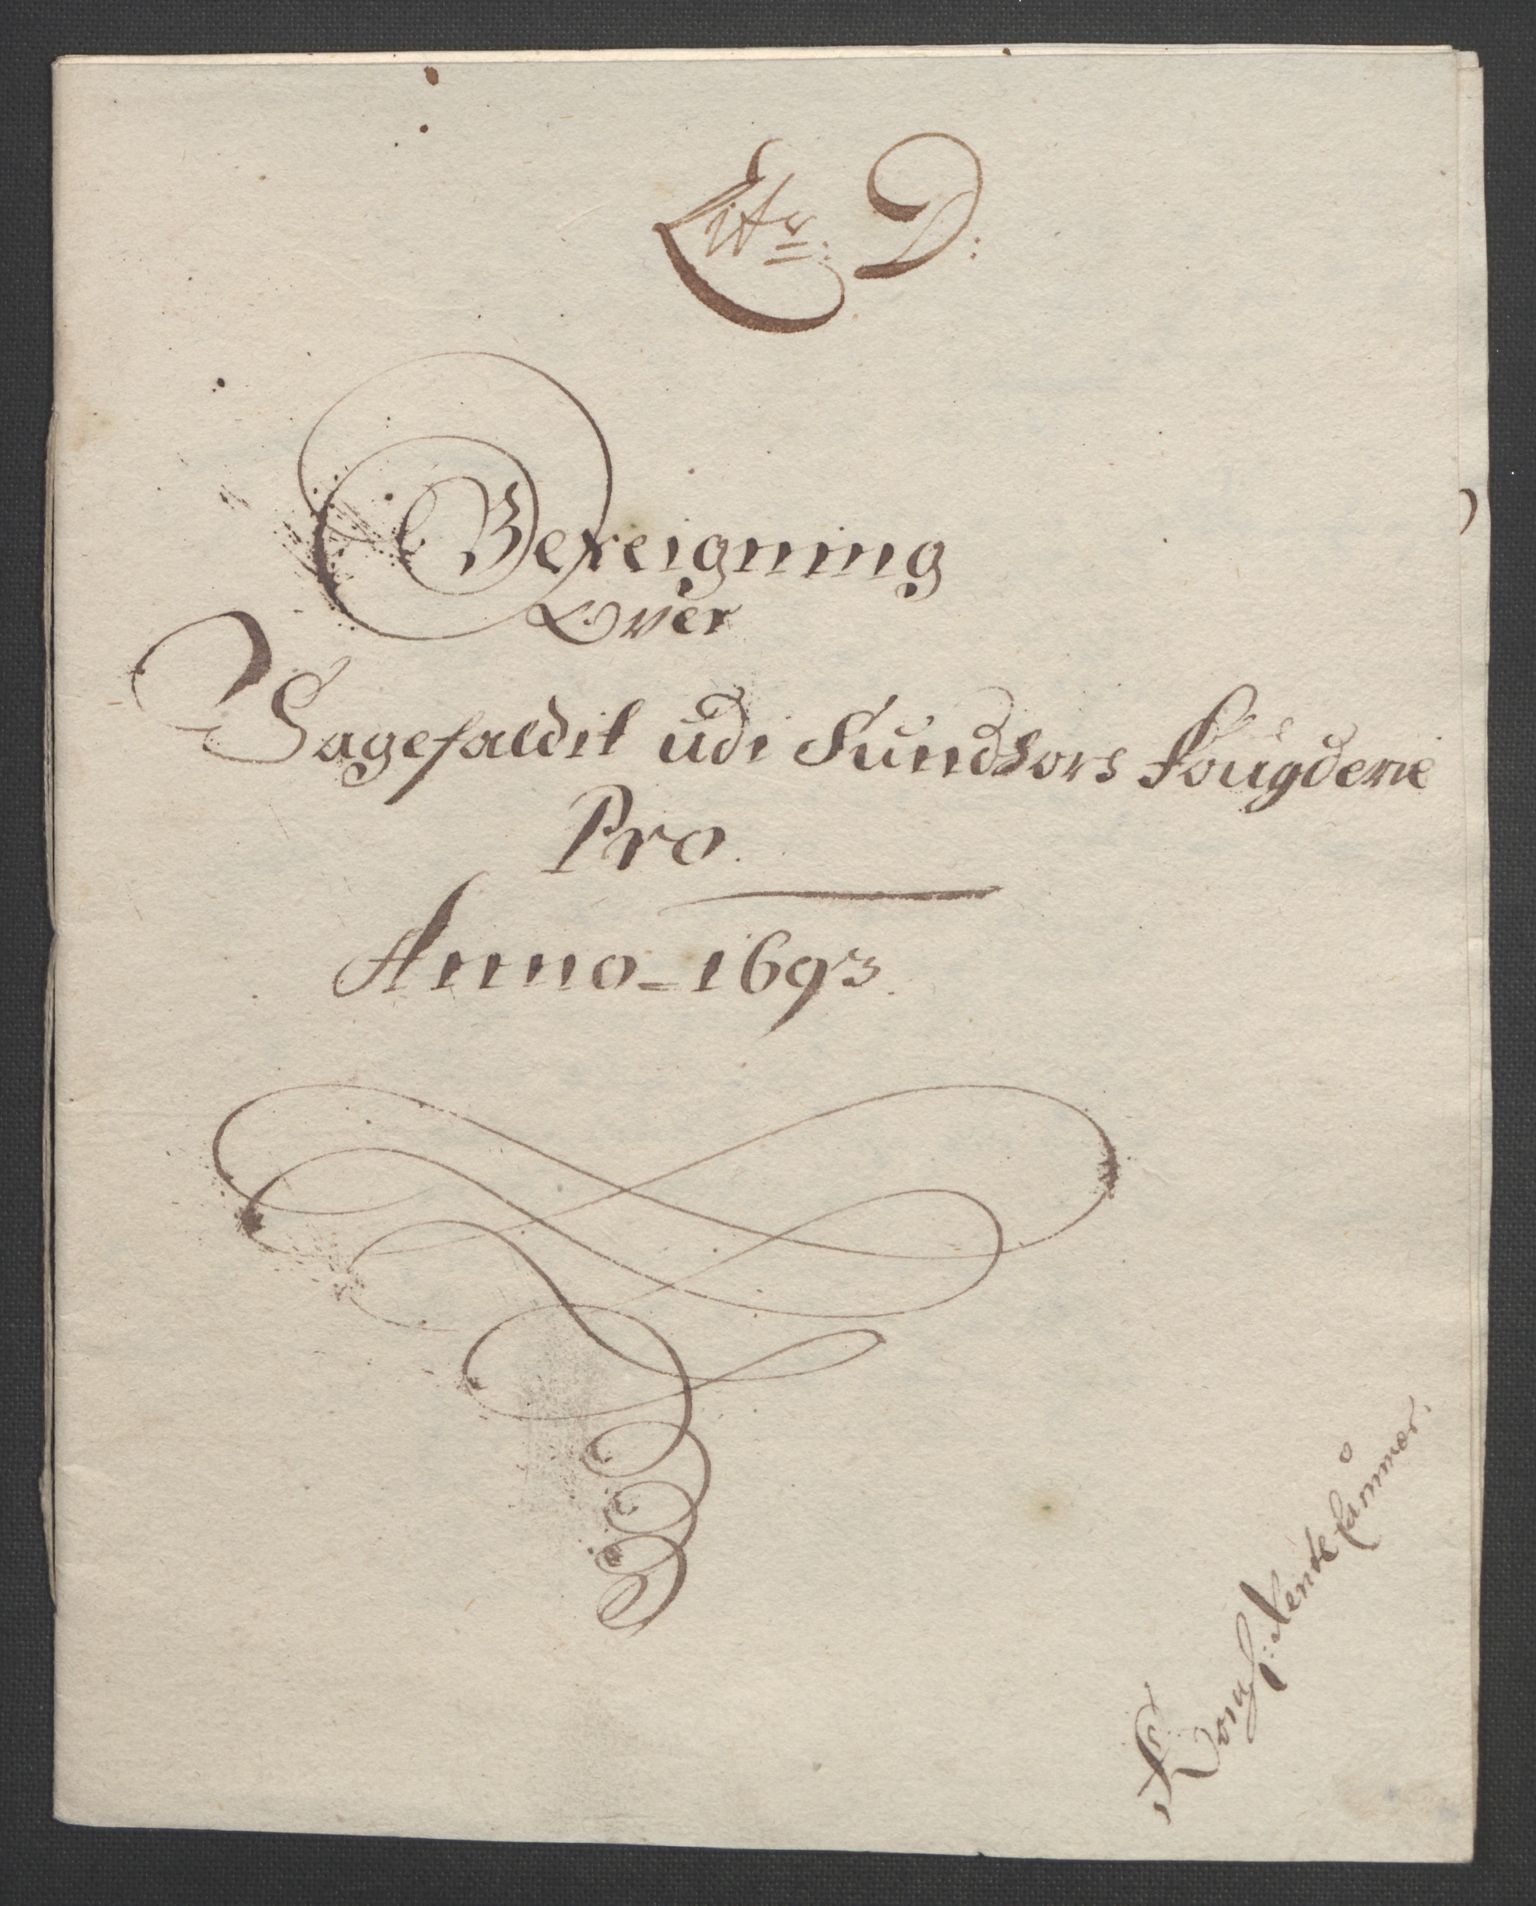 Litr: D:
Bereigning
Over
Sagefaldit udi Sundhors Fougderie
Pro
Anno 1693.
Kongl: Rentekammer.